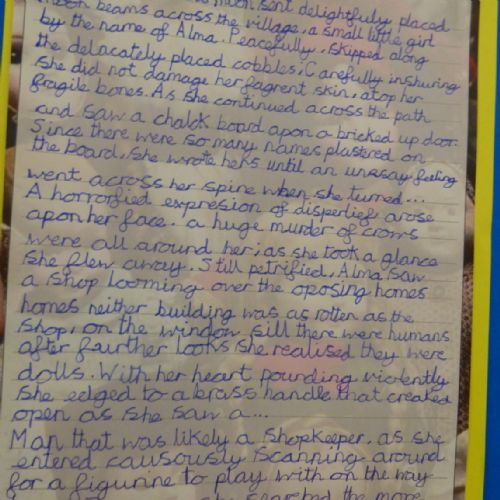 sent delightfully placed
moon beams across the village, a small little girl
by the name of Alma. Peacefully, skipped along
the delacately placed cobbles, Carefully inshuring
she did not damage her fragrent skin, atop her
fragile bones. As she continued across the path
and saw a chalck board apon a bricked up door.
Since there were so many names plastered on
the board, she wrote hers until an uneasy feeling
went across her spine when she turned...
A horrorfied expression of disperlief arose
apon her face. a huge murder of crows
were all around her; as she took a glance
she flew away. Still petrified, Alma saw
a shop looming over the oposing homes
homes neither building was as rotten as the
shop, on the window sill there were humans
after faurther looks she realised they were
dolls. With her heart pounding violently
she edged to a brass handle that creaked
open as she saw a...
Man that was likely a shopkeeper, as she
entered causously scanning around
for a figurine to play with on the way
she searched the more